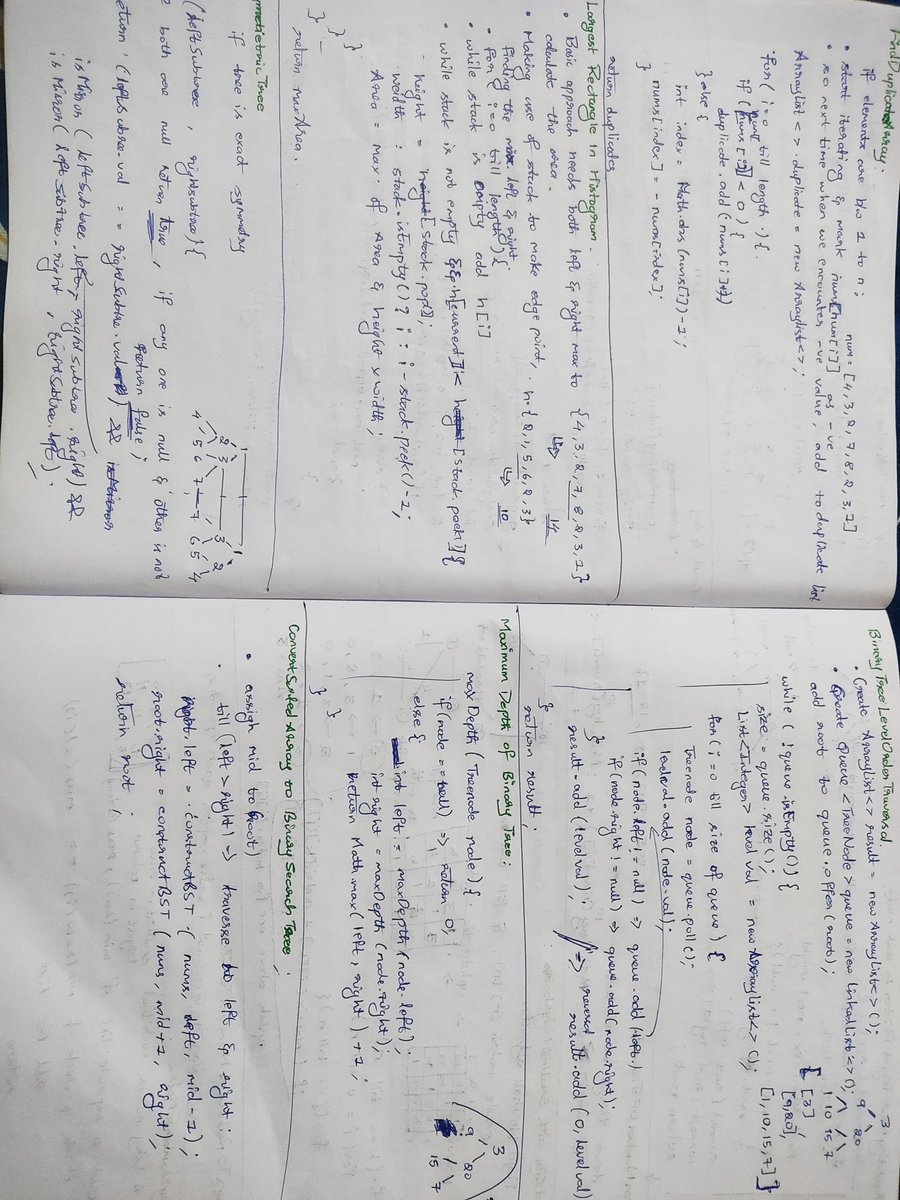 Find Duplicate Array:
if elements are b/w 1 to n; num = [4,3,2,7,8,2,3,7]
• start iterating & mark num[num[i]] as -ve
• so next time when we encounter -ve value, add to duplicate list
ArrayList<> duplicate = new ArrayList<>;
for( i=0 till length ){
if (nums[i] < 0) {
duplicate.add(nums[i]+1)
} else {
int index = Math.abs(nums[i]) - 1;
nums[index] = - nums[index];
}
return duplicates
Largest Rectangle In Histogram.
• Basic approach needs both left & right max to {4,3,2,7,8,2,3,1}
calculate the area. 14
• Making use of stack to make edge point, h = {2,1,5,6,2,3}
finding the left & right. 10
• for( i=0 till length){
• while stack is empty add h[i]
• while stack is not empty && h[current] < [stack.peek]{
- height = [stack.pop];
width : stack.isEmpty() ? i : i - stack.peek() - 1;
Area = Max of Area & height x width;
}
}
}
return maxArea.
metric Tree
if tree is exact symmetry
(leftSubtree, rightsubtree){
both are null return true, if any one is null & other is not
return false;
return (leftsubtree.val == rightSubtree.value) &&
isMirror (leftSubtree.left, rightSubtree.right) &&
isMirror (leftSubtree.right, rightSubtree.left);
1
2 2
3 3
4 5 6 7 7 6 5 4
Binary Tree Level Order Traversal
• Create ArrayList<> result = new ArrayList<>();
• Create Queue<TreeNode> queue = new LinkedList<>();
add root to queue.offer(root);
3
9 20
1 10 15 7
while ( !queue.isEmpty()) {
size = queue.size();
List<Integer> levelval = new ArrayList<>();
[[3]
[9,20],
[1,10,15,7]]
for( i=0 till size of queue) {
Treenode node = queue.poll();
levelval.add(node.val);
if(node.left != null) => queue.add(left.)
if(node.right != null) => queue.add(node.right);
}
result.add(levelval); // => reverse result.add(0, levelval)
}
return result;
Maximum Depth of Binary Tree:
maxDepth(Treenode node){
if(node == null) => return 0;
else {
int left = maxDepth(node.left);
int right = maxDepth(node.right);
return Math.max(left, right) + 1;
}
}
3
9 20
15 7
Convert Sorted Array to Binary Search Tree;
• assign mid to root)
• till (left > right) => traverse to left & right:
left = constructBST.( nums, left, mid-1);
root.right = constructBST( nums, mid+1, right);
return root;